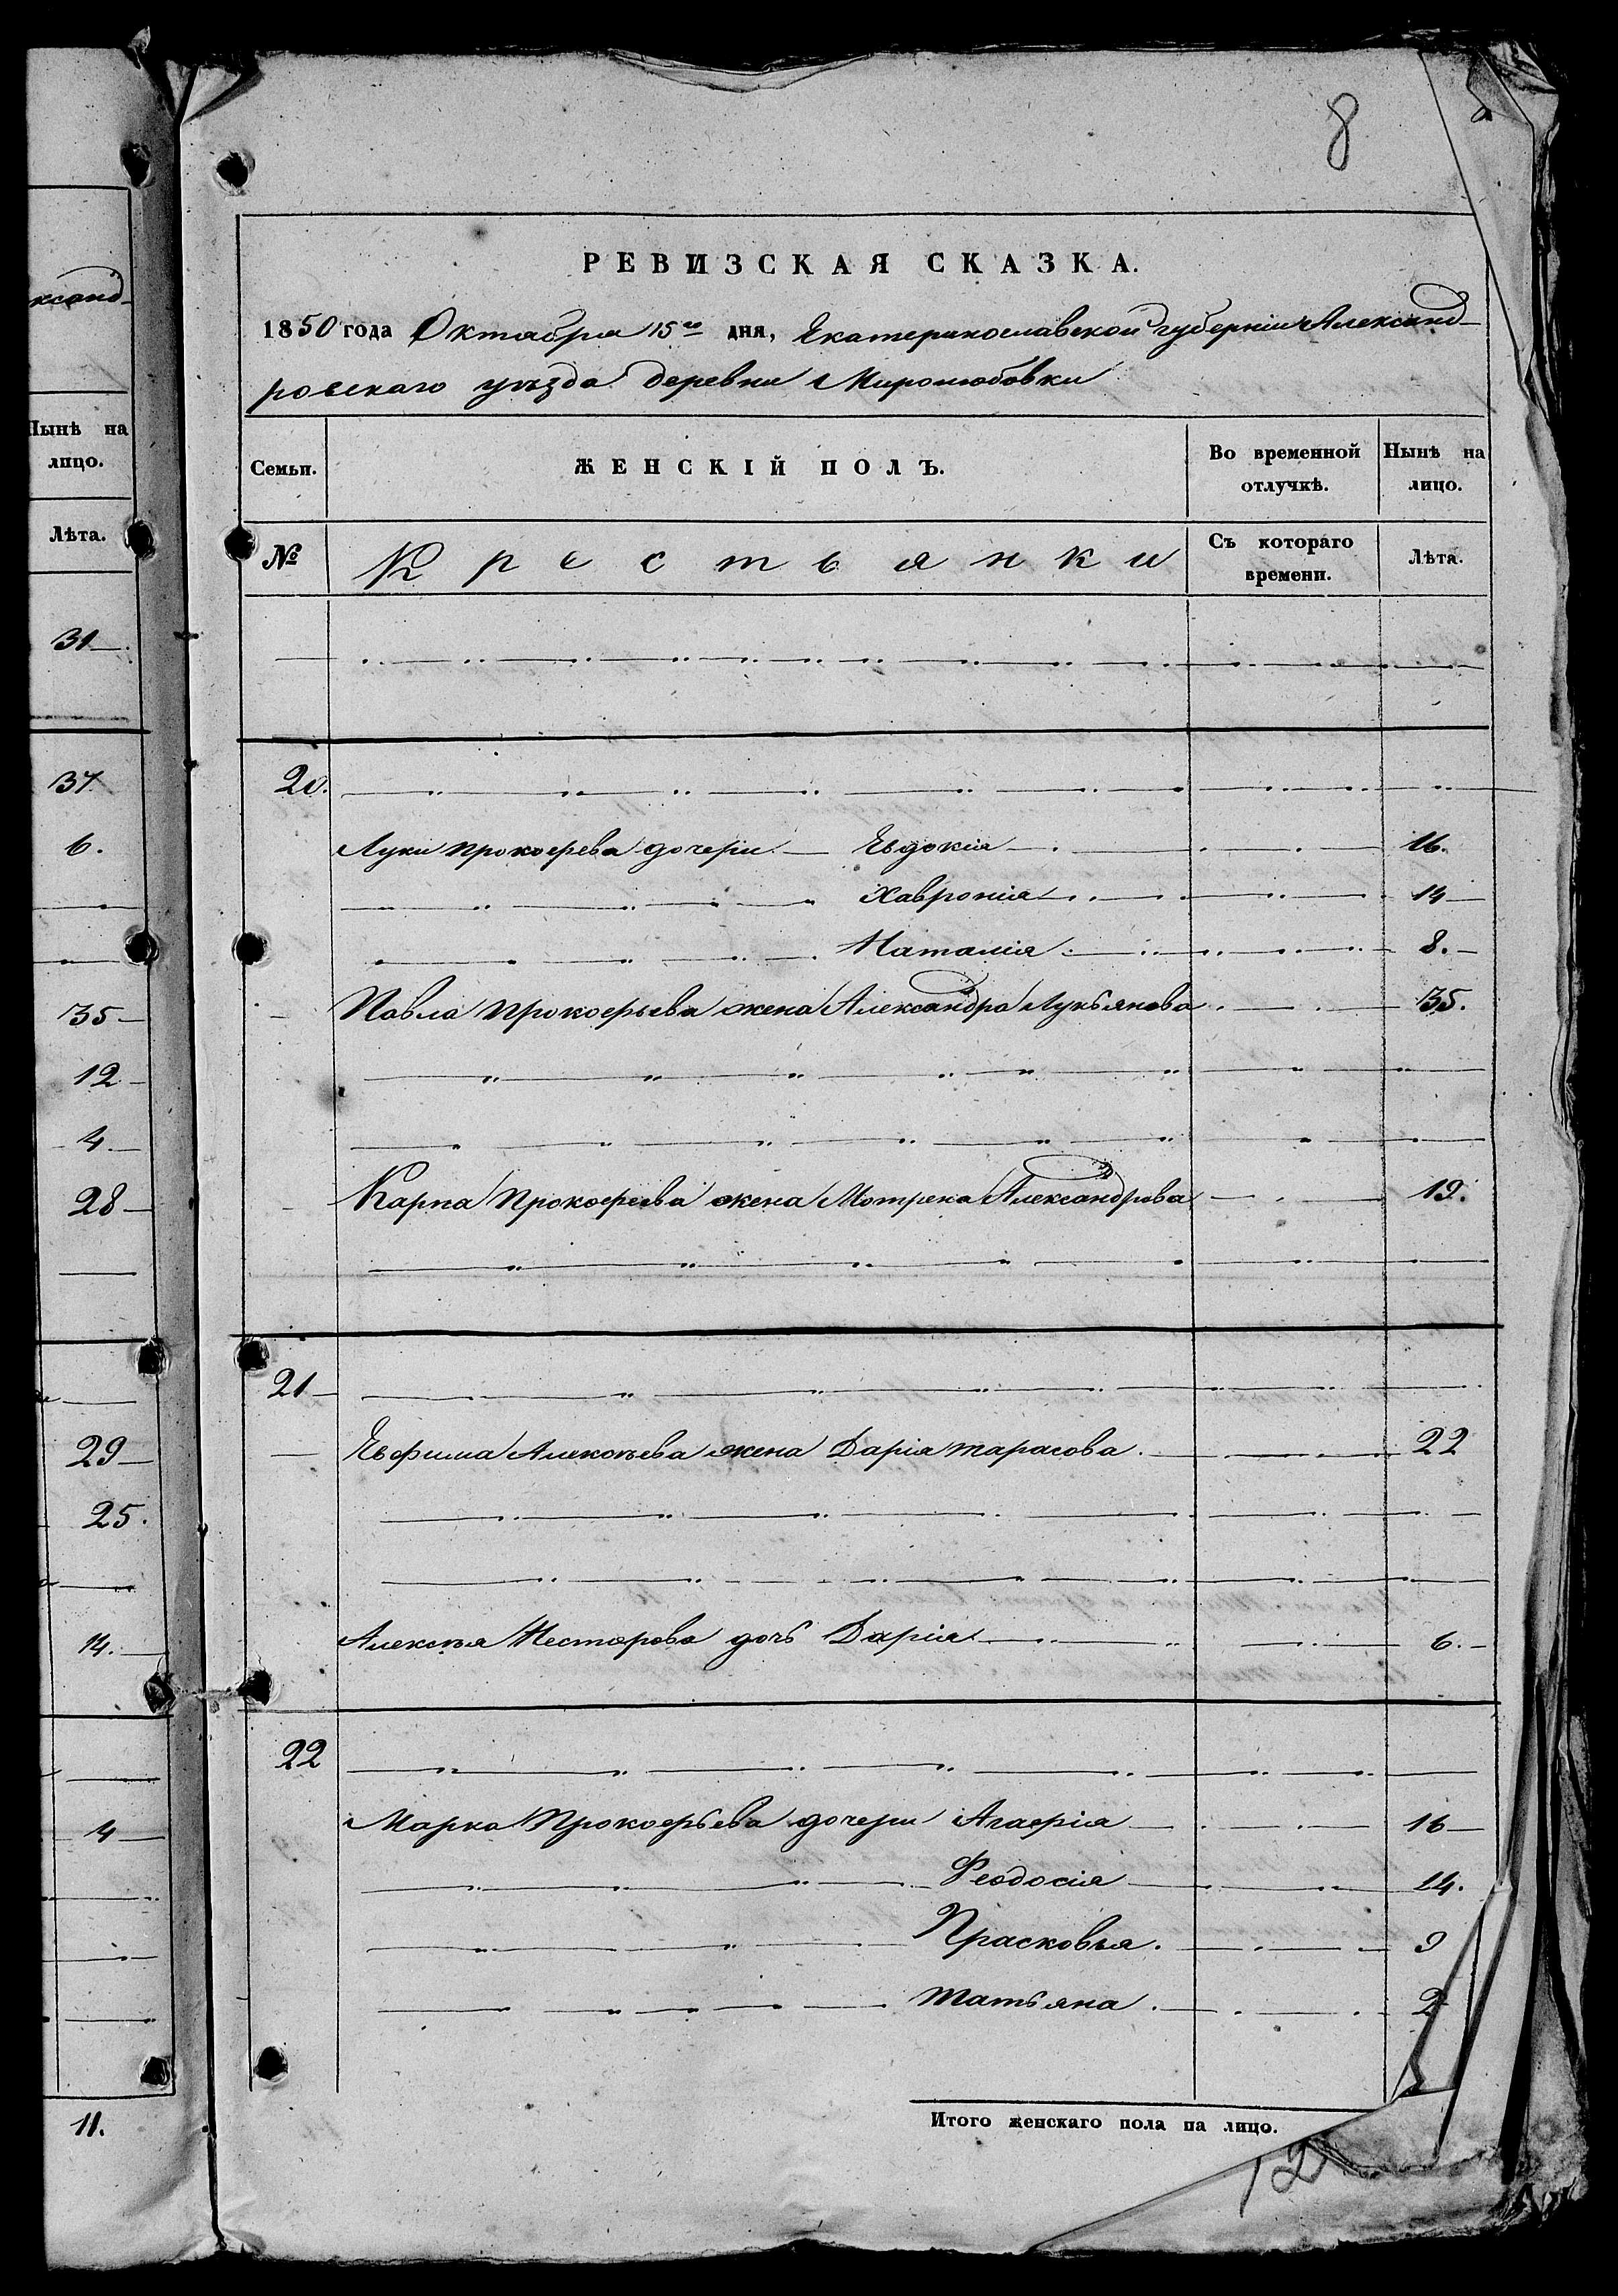 8
РЕВИЗСКАЯ СКАЗКА.
1850 года Октября 15го дня, Екатеринославской губерніи Александ-
ровскаго уѣзда деревни Миролюбовки
Семьи. ЖЕНСКІЙ ПОЛЪ. Во временной отлучкѣ. Нынѣ на лицо.
№ Крестьянки Съ котораго времени. Лѣта.
20.
Луки Прокофева дочери Евдокія 16.
Хавронія 14
Наталія 8.
Павла Прокофьева жена Александра Лукьянова 35.
Карпа Прокофева жена Мотрена Александрова 19.
21
Ефима Алексѣева жена Дарія Тарасова 22
Алексѣя Нестерова дочь Дарія 6.
22
Марка Прокофьева дочери Агафія 16
Феодосія 14.
Прасковья. 9
Татьяна. 2
Итого женскаго пола на лицо.
12
ксанд-
Нынѣ на
лицо.
Лѣта.
31
37
6.
35
12
4
28
29
25.
14.
4
11.